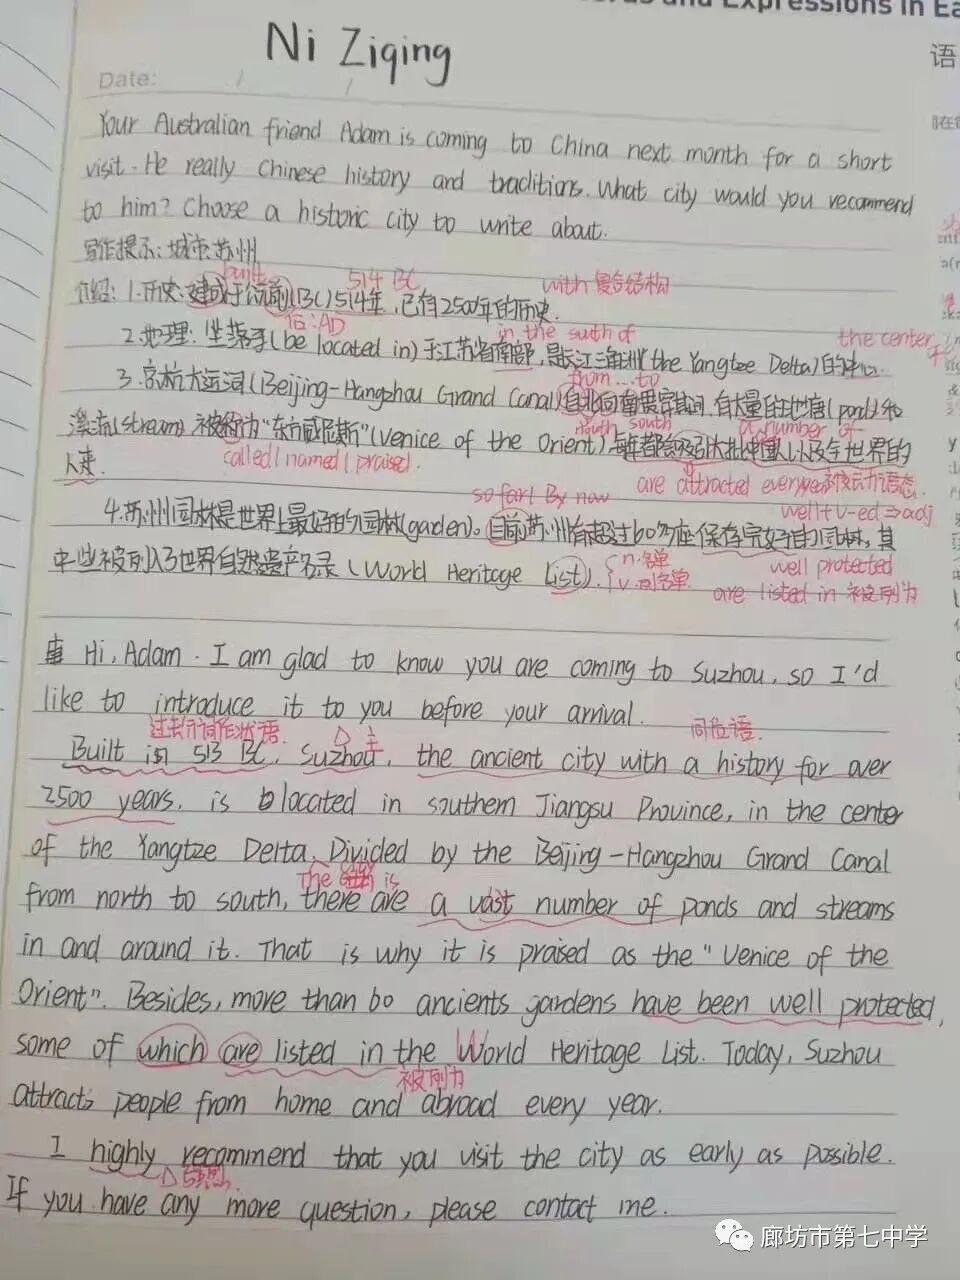 Expressions in Ea
语
Ni Ziqing
Date: / /
Your Australian friend Adam is coming to China next month for a short
visit. He really Chinese history and traditions. What city would you recommend
to him? Choose a historic city to write about.
写作提示: 城市: 苏州
built 514 BC with 复合结构
介绍: 1. 历史: 建成于公元前(BC)514年, 已有2500年的历史.
后: AD in the south of the center of
2. 地理: 坐落于(be located in)于江苏省南部, 是长江三角洲(the Yangtze Delta)的中心.
from...to
3. 京杭大运河(Beijing-Hangzhou Grand Canal)自北向南贯穿其间. 有大量的池塘(pond)和
north south a number of
溪流(stream) 被称为"东方威尼斯"(Venice of the Orient), 每年都会吸引大批中国人以及全世界的
人来. called/named/praised. are attracted every year 被动语态.
so far/By now well+v-ed⇒adj
4. 苏州园林是世界上最好的园林(garden)。目前苏州有超过60多座保存完好的园林, 其
n.名单 well protected
中些被列入了世界自然遗产名录 (World Heritage List). v.列名单 are listed in 被列为
Hi, Adam. I am glad to know you are coming to Suzhou, so I'd
like to introduce it to you before your arrival.
过去分词作状语. 主 同位语.
Built in 513 BC, Suzhou, the ancient city with a history for over
2500 years, is located in southern Jiangsu Province, in the center
of the Yangtze Delta. Divided by the Beijing-Hangzhou Grand Canal
the city is
from north to south, there are a vast number of ponds and streams
in and around it. That is why it is praised as the "Venice of the
Orient". Besides, more than 60 ancients gardens have been well protected,
some of which are listed in the World Heritage List. Today, Suzhou
被列为
attracts people from home and abroad every year.
I highly recommend that you visit the city as early as possible.
If you have any more question, please contact me.
廊坊市第七中学